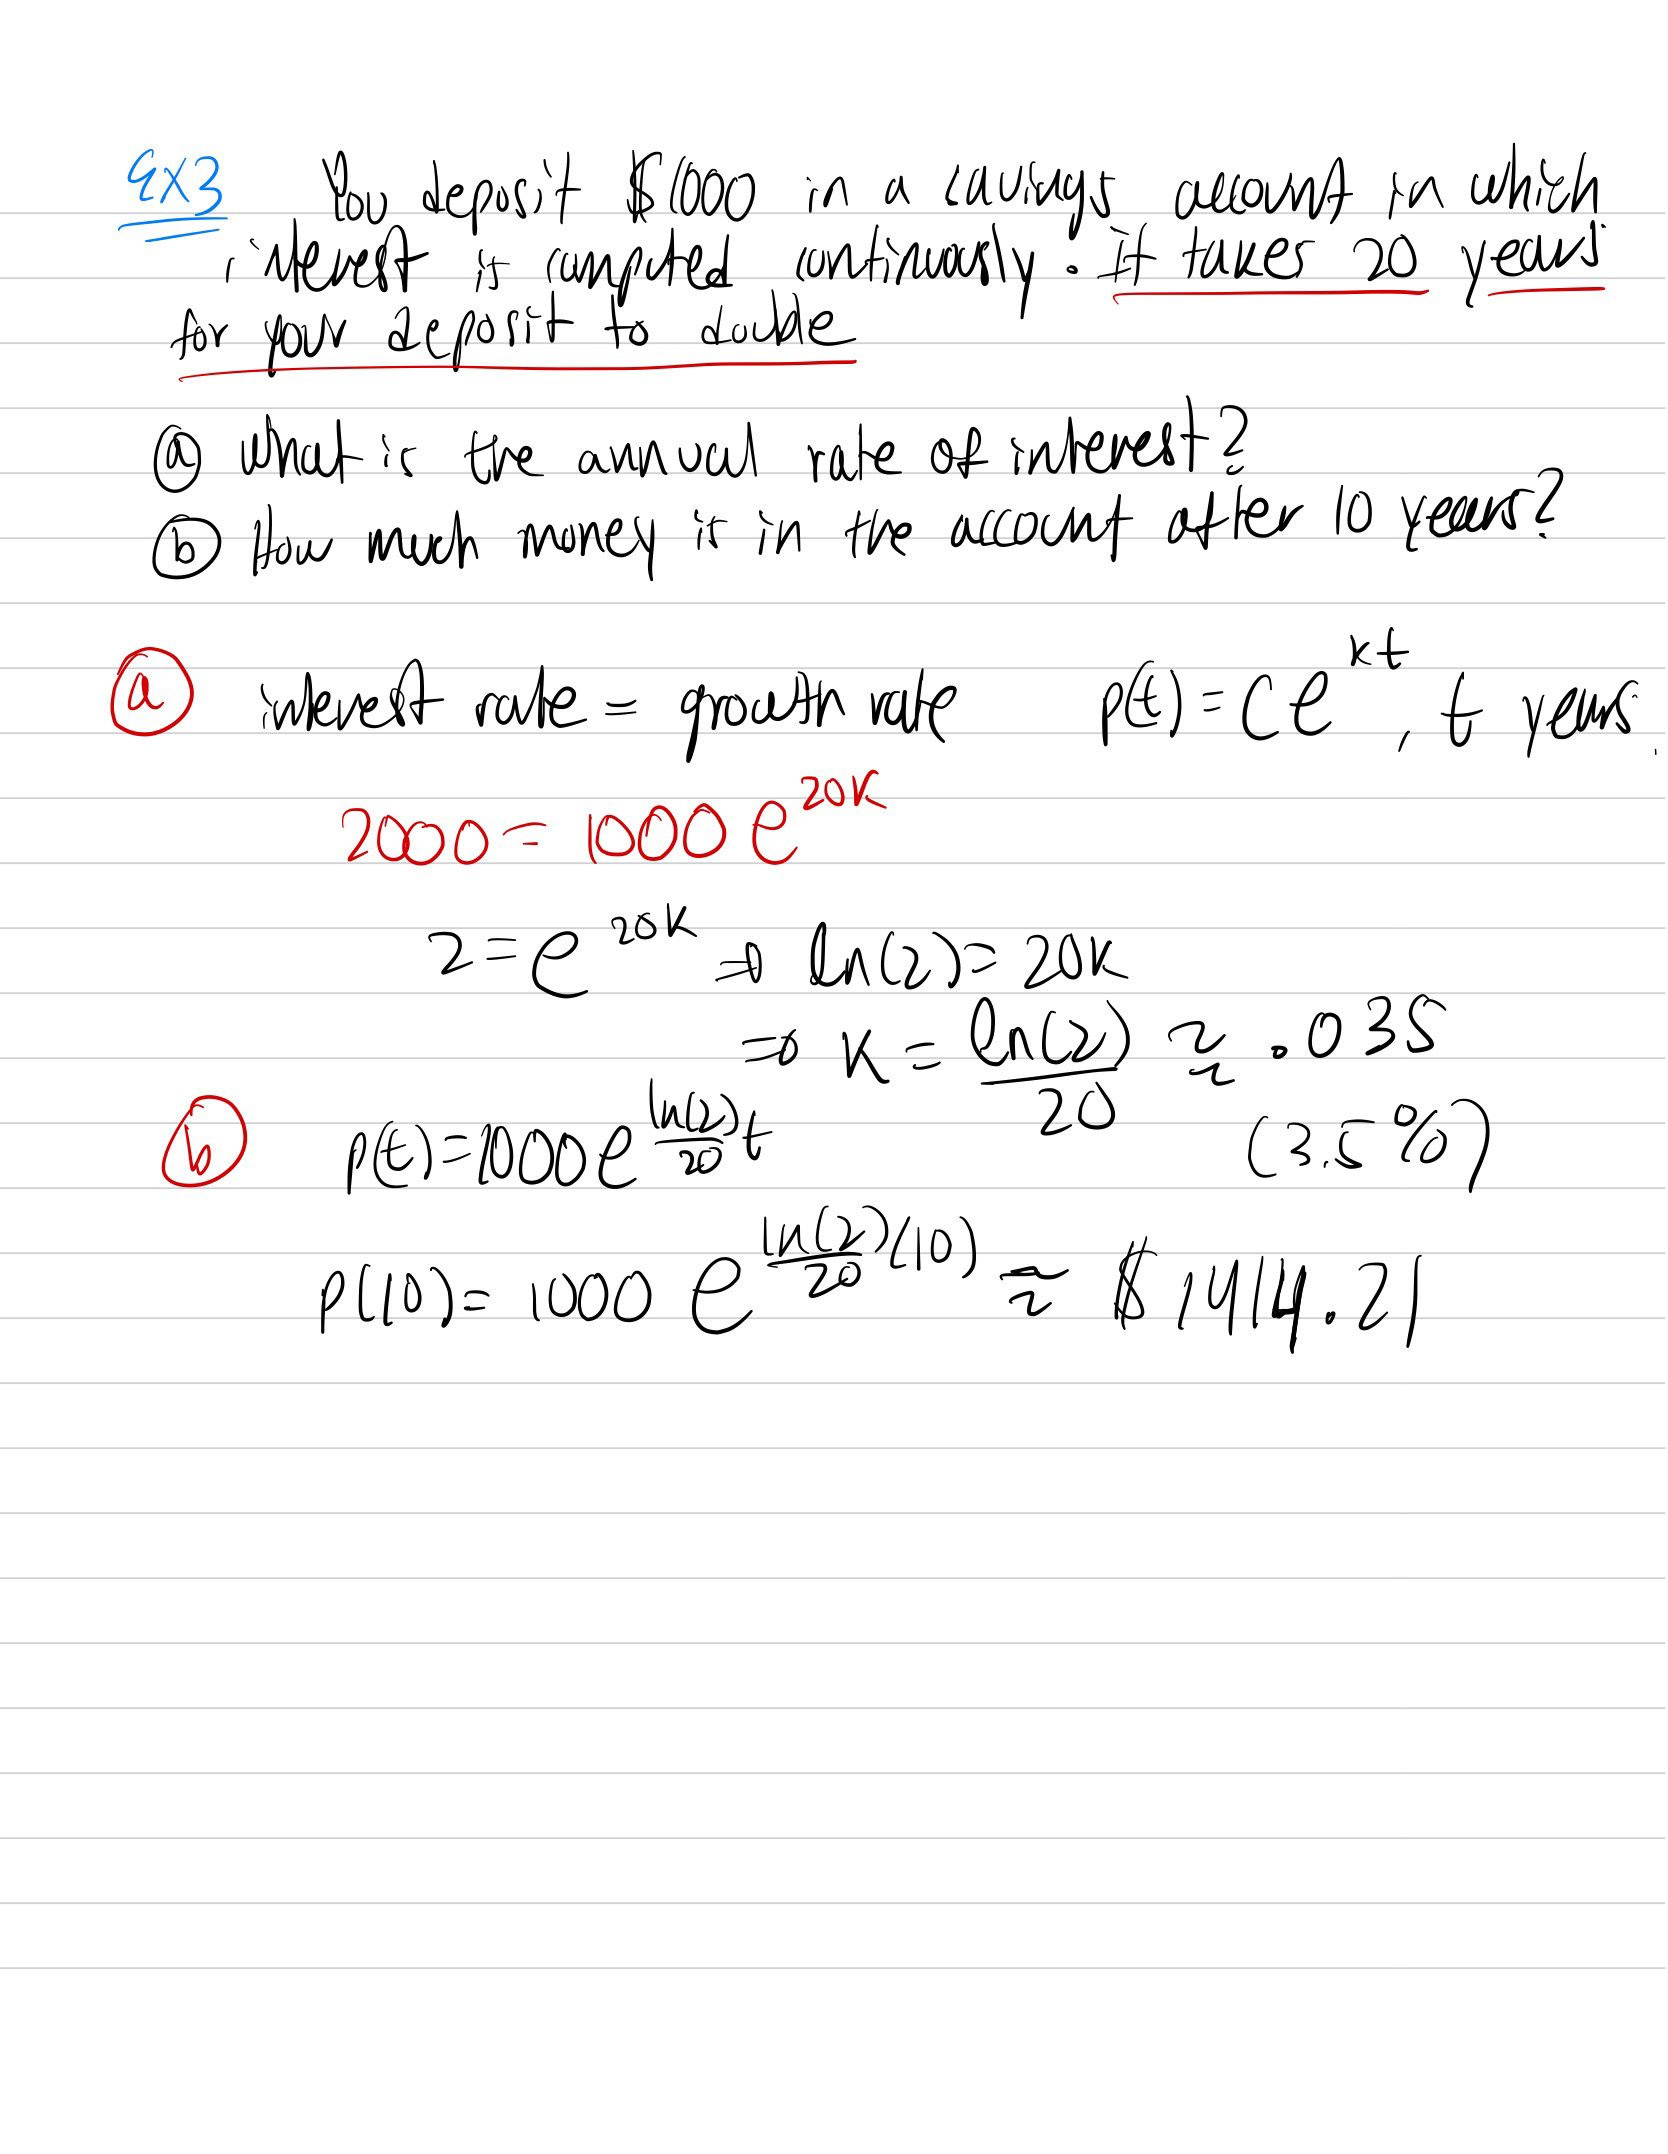 Ex3 You deposit $1000 in a savings account in which
interest is computed continuously. it takes 20 years
for your deposit to double
ⓐ What is the annual rate of interest?
ⓑ How much money is in the account after 10 years?
ⓐ interest rate = growth rate P(t) = Ce^{kt}, t years.
2000 = 1000 e^{20k}
2 = e^{20k} ⇒ ln(2) = 20k
⇒ k = \frac{ln(2)}{20} ≈ .035
(3.5%)
ⓑ P(t) = 1000e^{\frac{ln(2)}{20}t}
P(10) = 1000 e^{\frac{ln(2)}{20}(10)} ≈ $1414.21